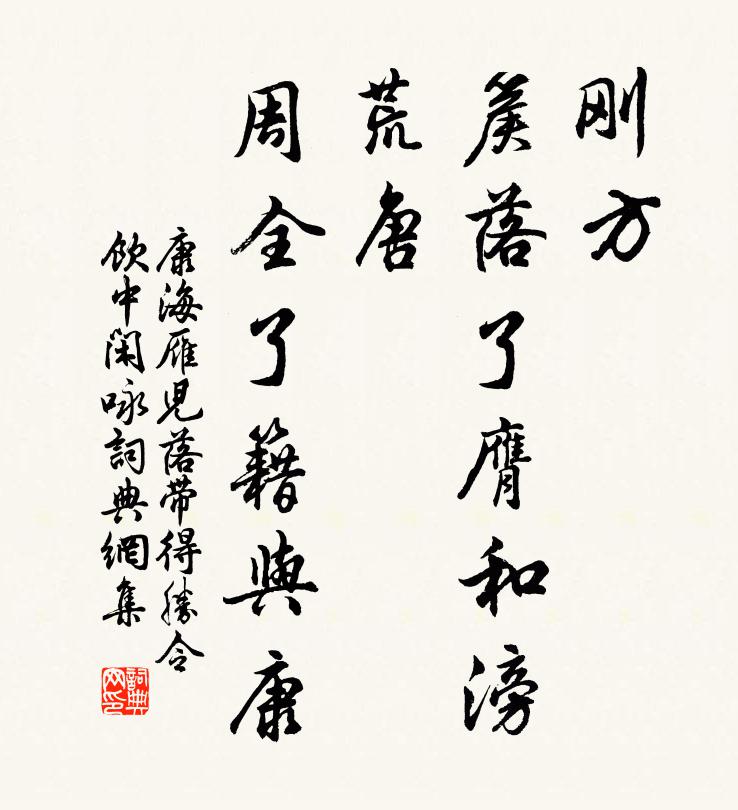 刚方
奚落了膺和滂
荒唐
周全了籍與康
康海雁兒落帶得勝令
飲中閑咏詞典網集
詞典
网印